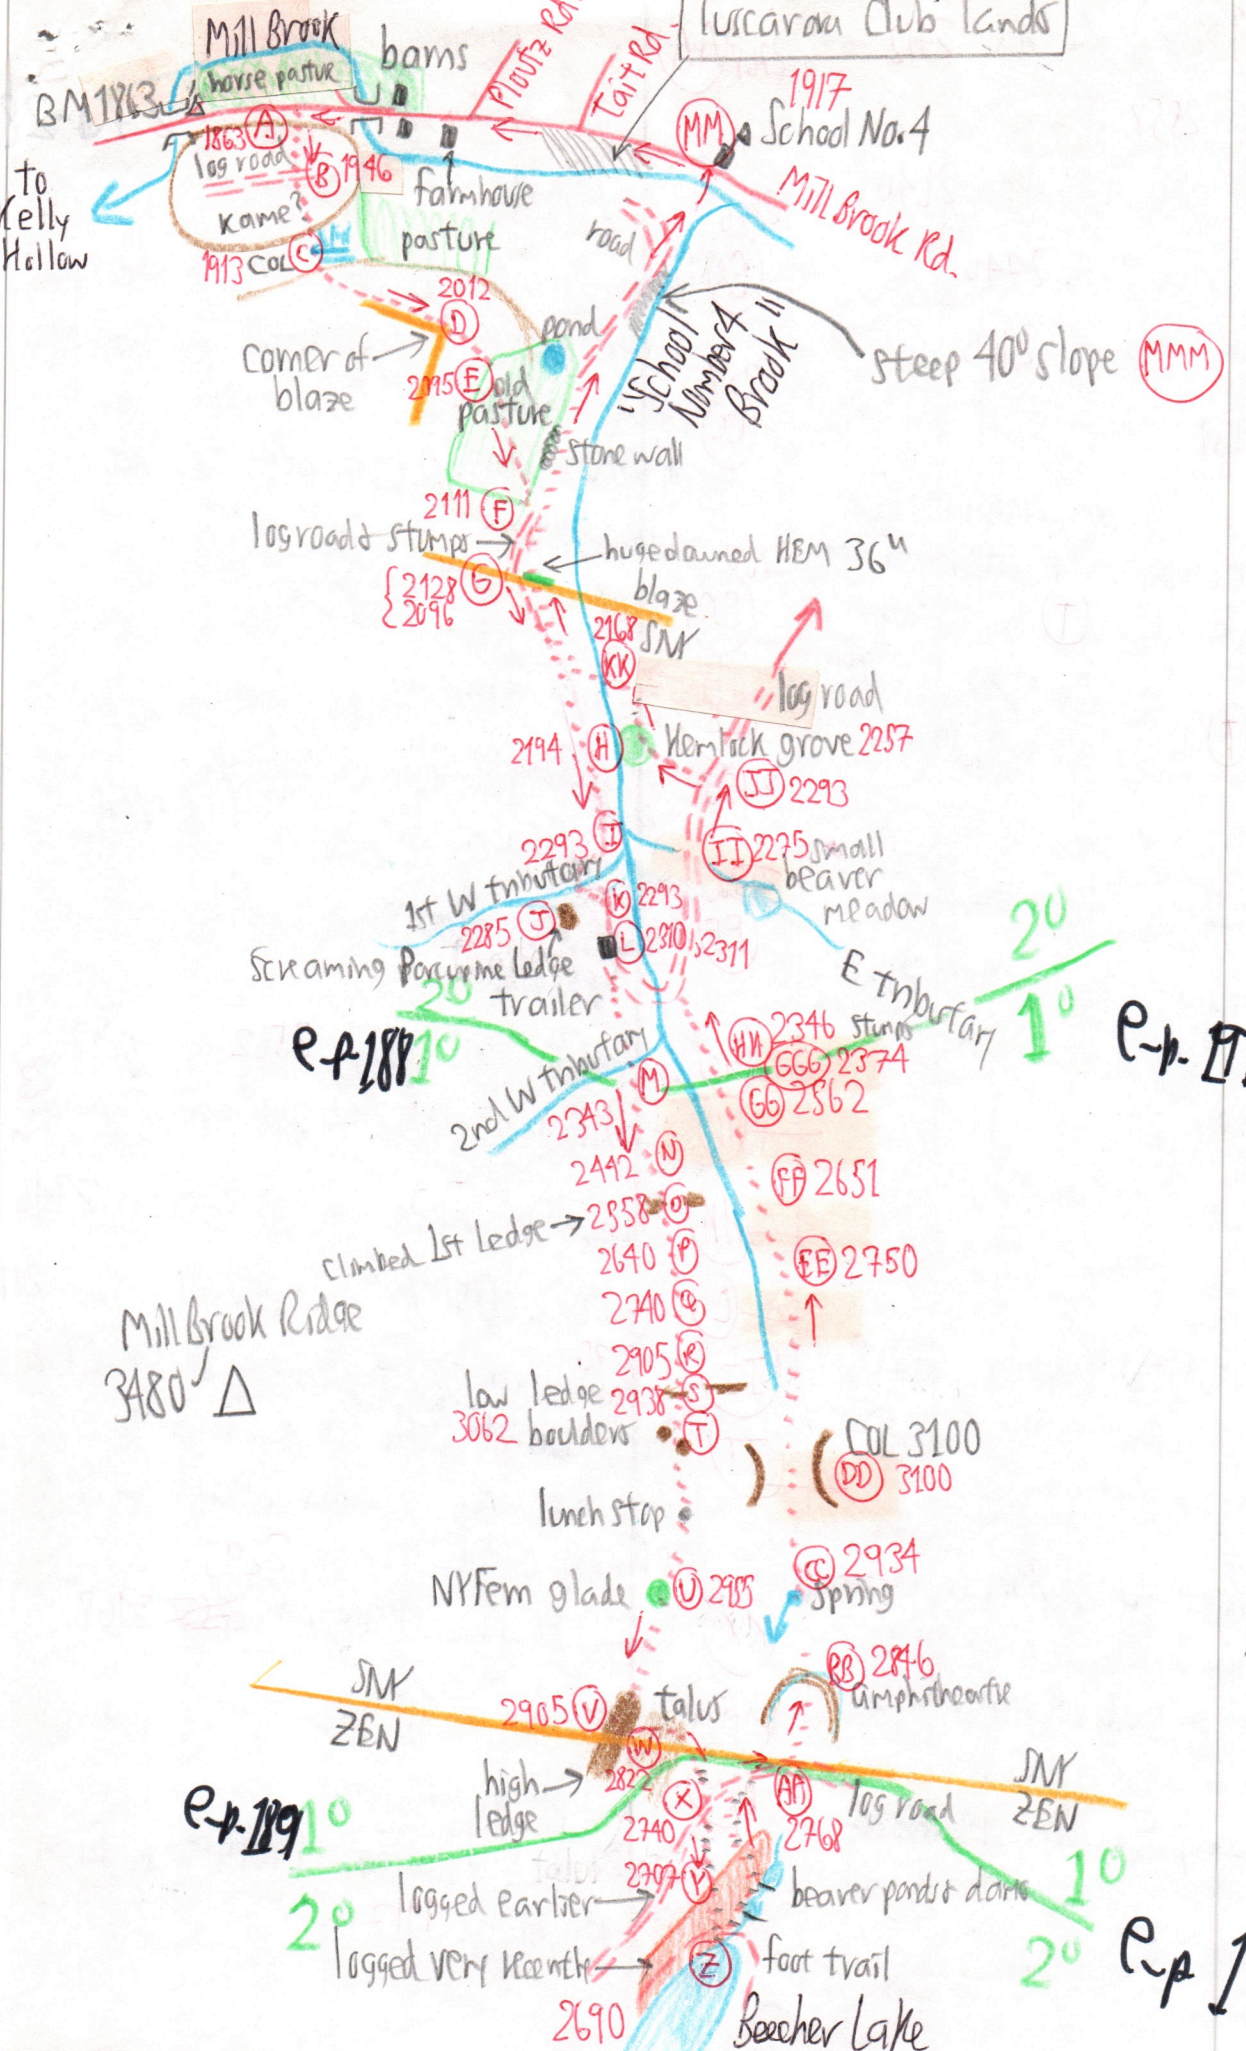 Tuscarora Club lands
Mill Brook
horse pasture
barns
Ploutz Rd.
Tait Rd.
BM1863
1863 A
MM
1917
School No. 4
log road
B 1946
farmhouse
Mill Brook Rd.
to
Kelly
Hollow
Kame?
pasture
road
1913 COL C
2012
D
pond
"School
Number 4
Brook"
steep 40° slope MMM
corner of
blaze
E
old
pasture
stone wall
2111 F
log road & stumps
huge downed HEM 36"
{2128 G
{2096
blaze
2168
SNY
KK
log road
2194 H
Hemlock grove 2257
JJ 2293
2293 I
II 2275 small
beaver
meadow
1st W tributary
K 2293
2285 J
L 2310
2311
Screaming Porcupine Ledge
trailer
E tributary
2°
1°
2°
1°
e-p. 188
HH 2346
stumps
GGG 2374
GG 2562
2nd W tributary
M
2343
2442 N
FF 2651
climbed 1st ledge
2558 O
2640 P
EE 2750
2740 Q
Mill Brook Ridge
3480
2905 R
low ledge 2938 S
3062 boulders T
COL 3100
DD 3100
lunch stop
CC 2934
NY Fern glade U 2955
spring
BB 2846
amphitheatre
SNY
ZEN
2905 V
talus
W
2822
high
ledge
X
2740
AA
2768
log road
SNY
ZEN
e-p. 189
1°
2°
2707 Y
logged earlier
beaver ponds & dams
1°
2°
logged very recently
Z
foot trail
2690
Beecher Lake